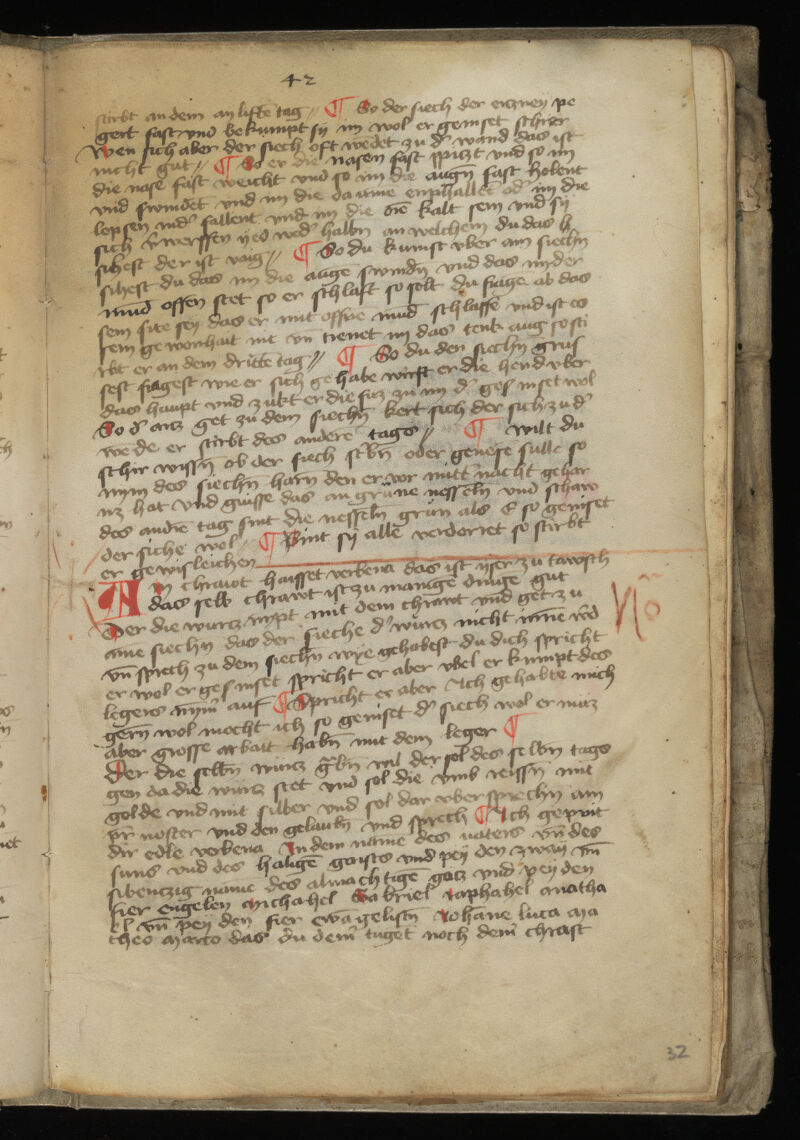 42
stirbt an dem an lifte tag // ¶ So der siech der erczney pe
gert fast vnd bekumpt sy im wol er geniset schier
Wen sich aber der siech oft wedet zu d' wand das ist
nicht gut // ¶ So er die nasen fast spiczt vnd so im
die nase fast weicht vnd so im die augn fast holent
vnd swindet vnd im die da ume enphallet od' im die
lepsen nid' fallent vnd im die die kalt sein vnd sy
sich v'werffen yed wed' halbn an welchem du das
sihest der ist vaig // ¶ So du kumst vber ain siechn
sihest du das im die auge swindn vnd das nyder
mud offen stet so er schlaft so solt du frage ob das
sein site sey das er mit offne mud schlaffe vnd ist es
sein gewonhait nit vn trenet im das tenk aug so sti
rbt er an dem dritte tag // ¶ So du den siechn grus
sest fragest wie er sich gehabe wirft er die hend vber
das haupt vnd zukt er die fuz zu im d' geniset wol
So d' arcz get zu dem siechn kert sich der sich zu d'
wende er stirbt des andere tages // ¶ Wilt du
schir wissn ob der siech st'bn oder genese sulle so
nym des siechn harn den er vor mitt nacht gehar
nz hat vnd guisse das an grune nesseln vnd schaw
des andre tag sint die nesseln grun als so geniset
der siche wol ¶ Sint sy alle verderret so stirbt
er gewisleichen
Ain chrawt haisset verbena das ist yser zu tawsch
das selb chrawt ist zu manige dinge gut
Der die wurcz nypt mit dem chrawt vnd get zu
aine siechn das der sieche d' wurcz nicht inne w'd
vn sprech zu dem siechn wye gehabest du dich spricht
er wol er geniset spricht er aber vbel er kumpt des
legers nym' auf ¶ Spricht er aber Ich gehabte mich
gern wol mocht ich so geniset d' siech wol er muz
aber grosse arbait habn mit dem leger ¶
Der die selbn wurcz g'bn wil der sol des selbn tags
gen da die wurcz stet vnd sol die vmb reissn mit
golde vnd mit silber vnd sol dar vber sprechn ain
pr noster vnd den gelaubn vnd sprech ¶ Ich gepeut
dir edle verbena In dem name des vaters vn des
suns vnd des hailige gaists vnd pey den zway vn
sibenczig name des almachtige gotz vnd pey den
fier engelen Michahel Gabriel Raphahel anatha
el vn pey den fier ewagelistn Iohane luca ma
theo Marco das du dein' tuget noch dein' chraft
No
32